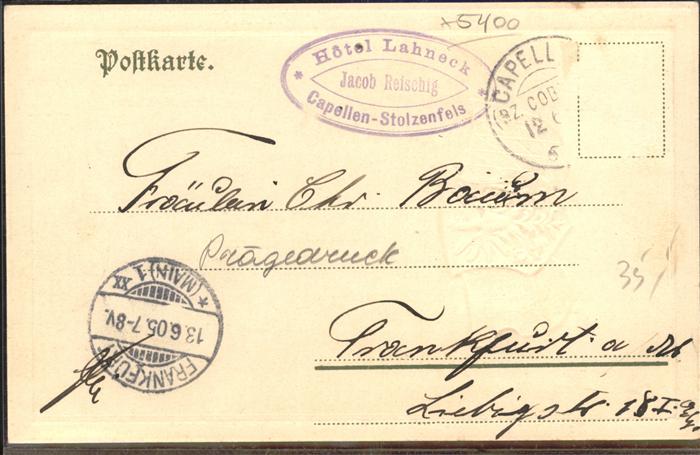 5400
Postkarte.
* Hôtel Lahneck *
Jacob Reischig
Capellen-Stolzenfels
CAPELL
(BZ. COB
12
Fräulein Chr. Baum
Prägedruck
35,-
* (MAIN) 1 XX
13.6.05.7-8V.
FRANKFU
Frankfurt a M.
Liebigstr. 18 I.